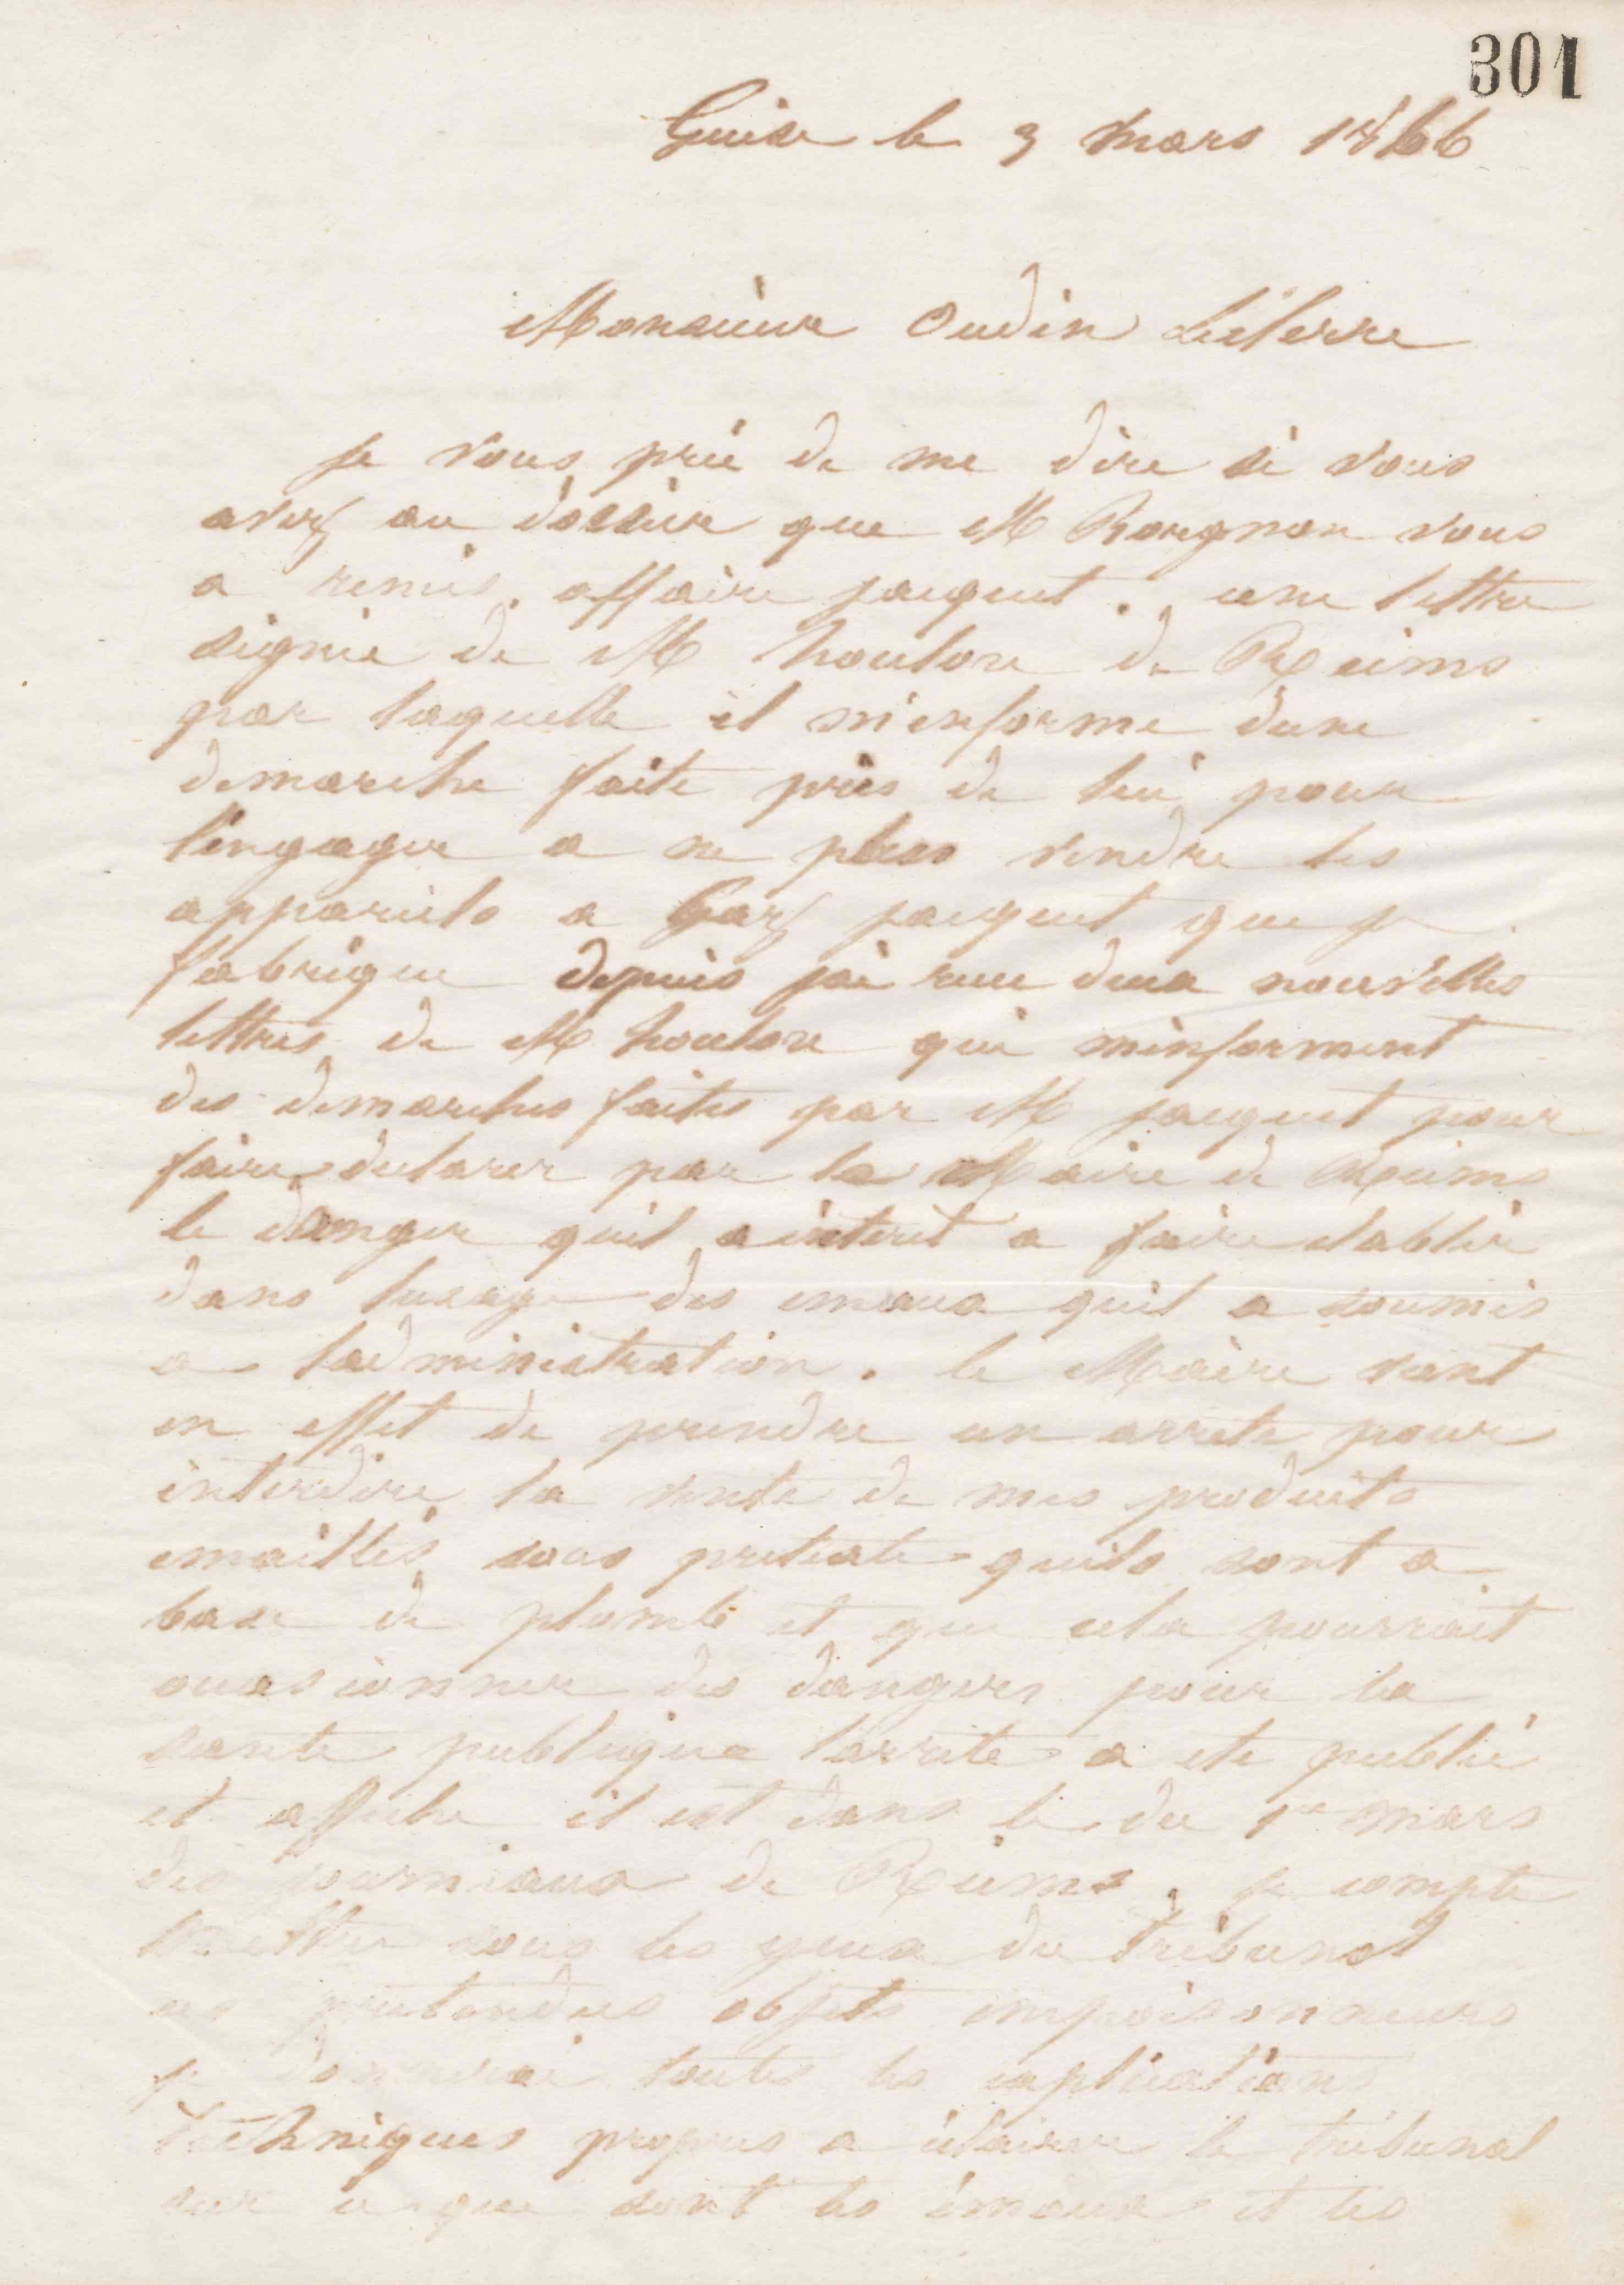 301
Guise le 3 mars 1866
Monsieur Oudin Leclerre
je vous prie de me dire si vous
avez au dossier que M Rorgnon vous
a remis. affaire jacquet. une lettre
signie de M houlon de Reims
par laquelle il m'informe dune
demarche faite près de lui pour
l'engager a ne plus vendre les
appareils a Gaz jacquet que je
fabrique depuis jai recu deux nouvelles
lettres de M houlon qui minforment
des demarches faites par M jacquet pour
faire declarer par la Maire de Reims
le danger quil a interet a faire etablir
dans lusage des emaux quil a soumis
a ladministration. le Maire vient
en effet de prendre un arrete pour
interdire la vente de mes produits
emaillés sous pretexte quils sont a
base de plomb et que cela pourrait
occasionner des dangers pour la
sante publique larrete a ete publié
et affiche il est dans le du 1er mars
des journiaux de Reims. je compte
mettre sous les yeux du tribunal
ces pretendus objets empoisonneurs
je donnerai toutes les explications
techniques propres a éclairer le tribunal
sur ce que sont les émaux et les